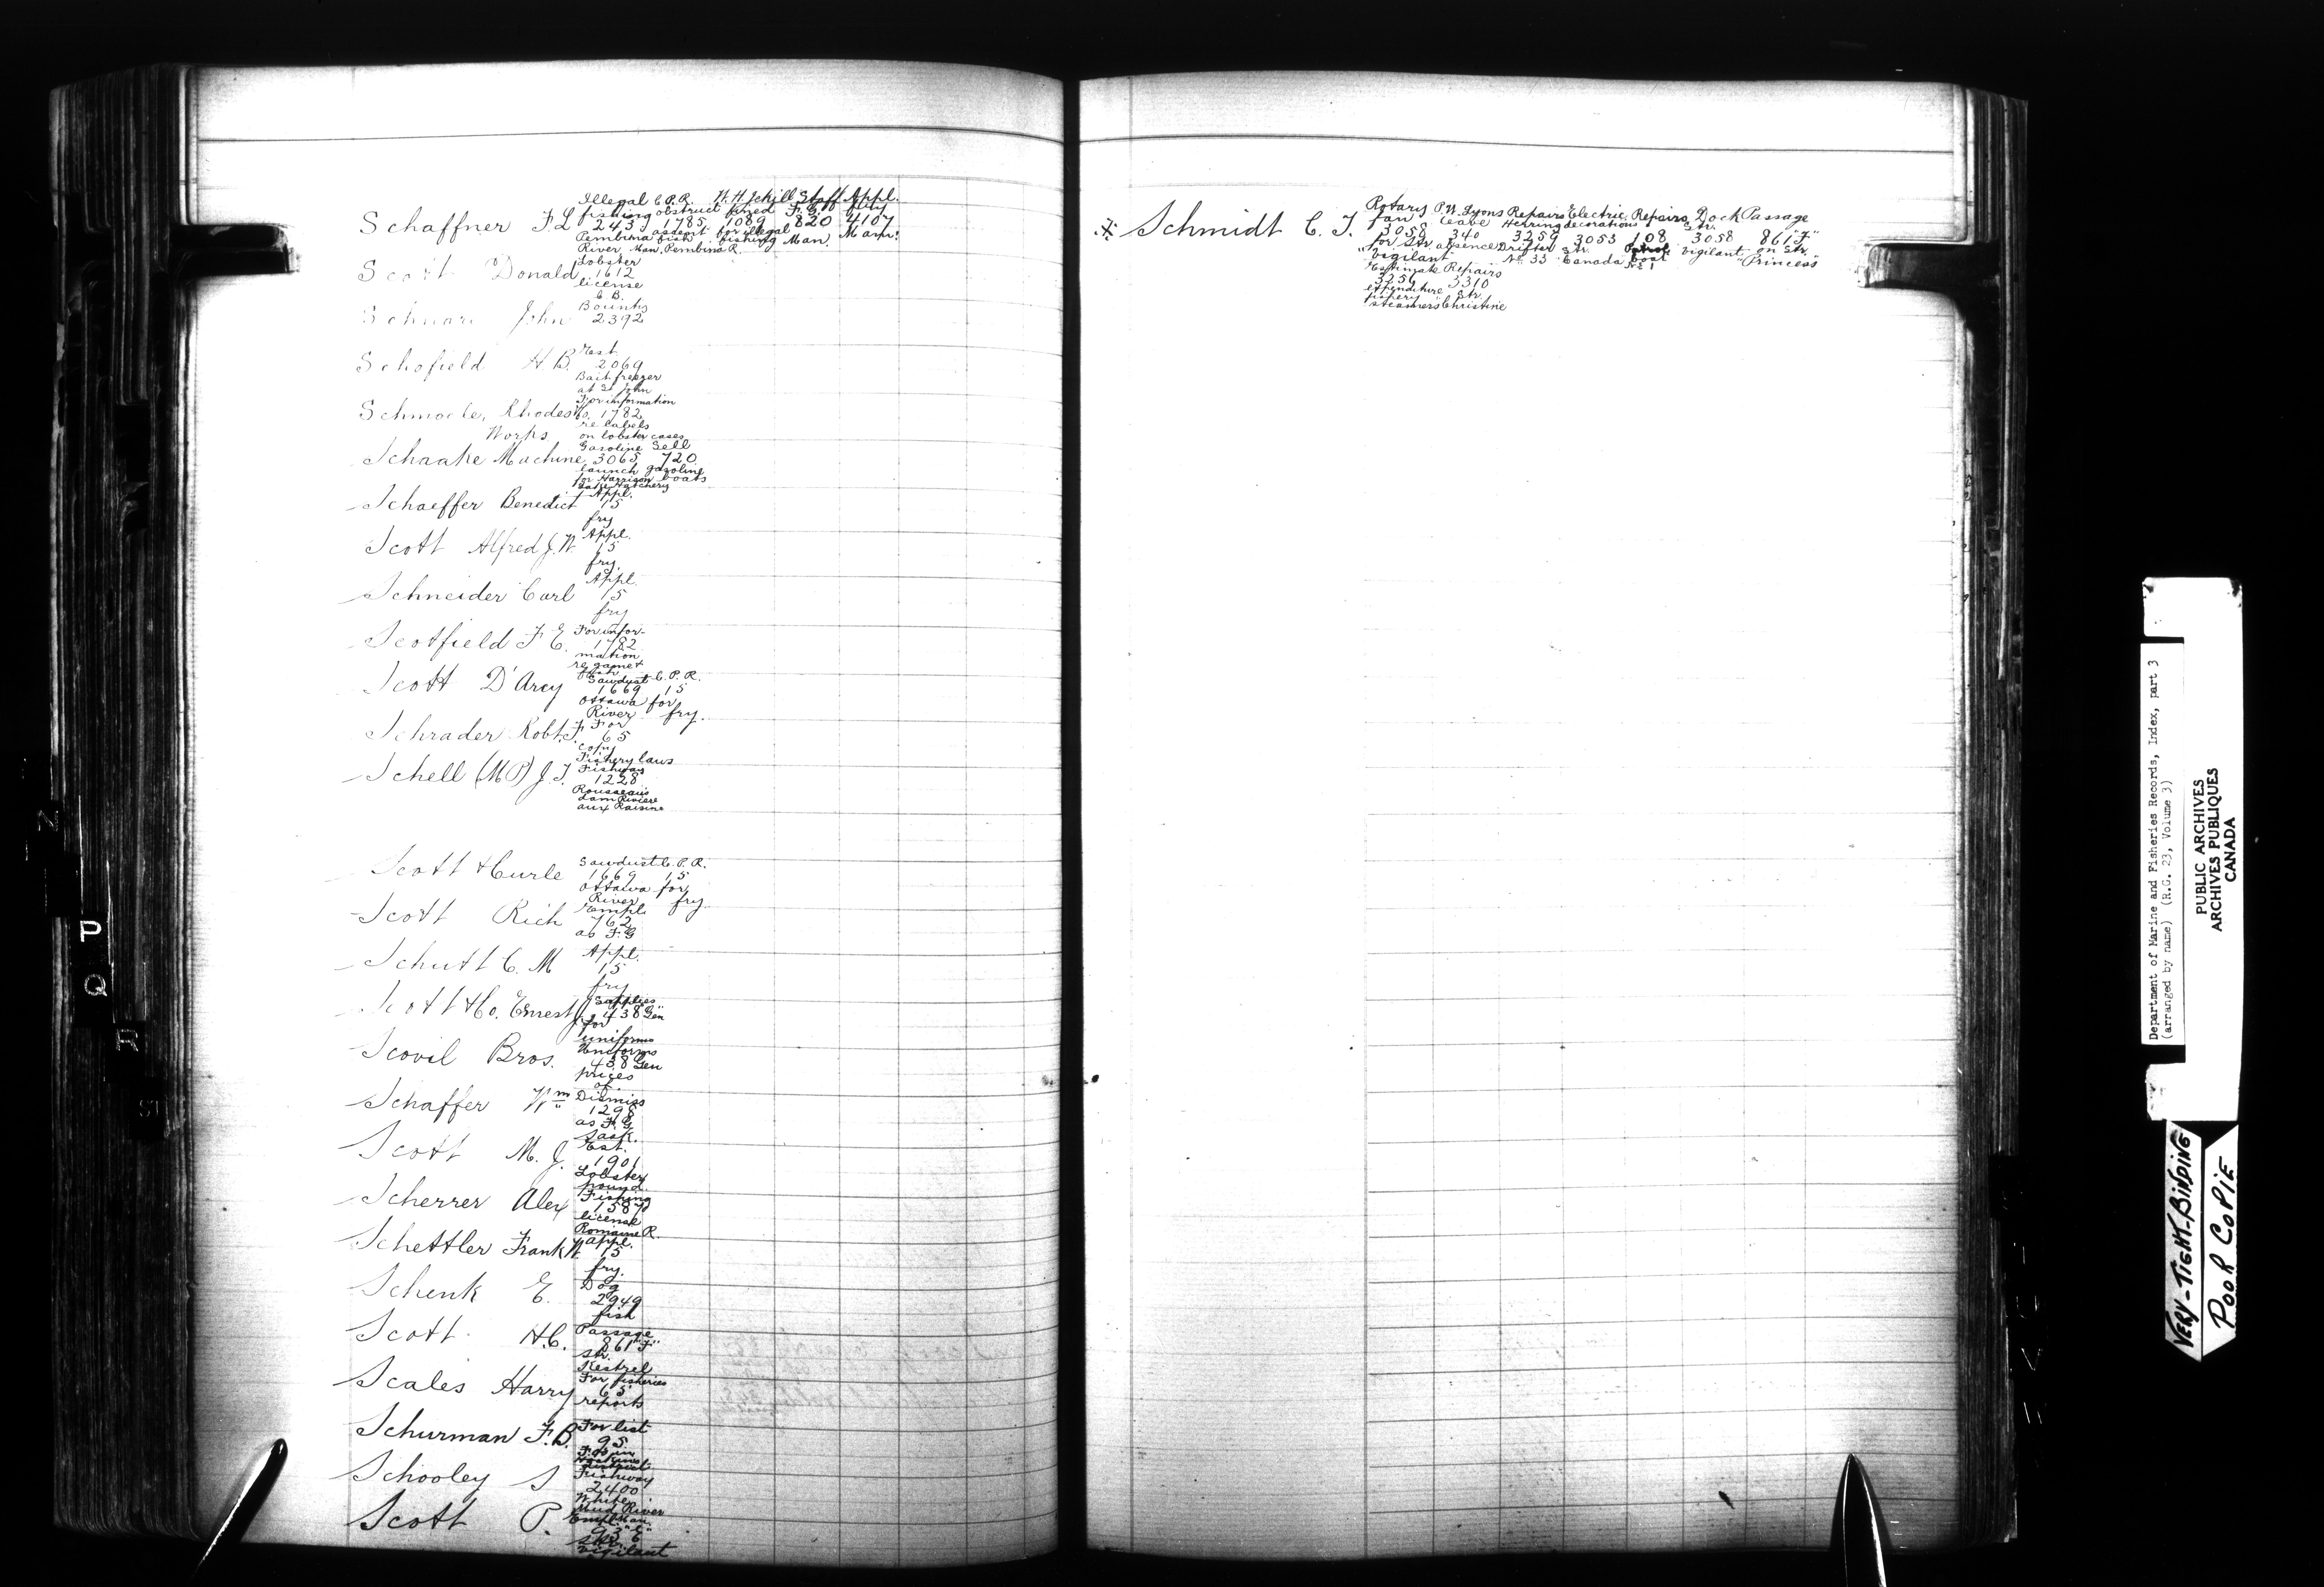 Illegal C.P.R. W.H. Jekill Staff Appl.
Schaffner F.L fishing obstruct fined F.G. fry
243 1785 1089 820 4107
Pembina fish ascent for illegal fishing Man. Man.
River Man. Pembina R.
Lobster
Scott Donald 1612
license
C.B.
Bounty
John 2392
Est.
Schofield H.B. 2069
Bait freezer
at St John
For information
Rhodes Co. 1782
re labels
Works on lobster cases
Gasoline Sell
Schaake Machine 3065 720
launch gasoline
for Harrison boats
Lake Hatchery
Appl.
Schaeffer Benedict 15
fry
Appl.
Scott Alfred J.W. 15
fry.
Appl.
Schneider Carl 15
fry
For infor-
Scotfield F.E. 1782
mation
re game &
fish
Sawdust C.P.R.
Scott D'Arcy 1669 15
Ottawa for
River fry.
For
Schrader Robt. F. 65
copy
Fishery laws
Fishway
Schell (MP) J.T. 1228
Rousseau's
dam Riviere
aux Raisins
Sawdust C.P.R.
Scott & Curle 1669 15
Ottawa for
River fry.
Empl.
Scott Rich 762
as F.G
Appl.
Schutt C.M 15
fry
Supplies
Scott & Co. Ernest J. 438 "Gen"
for
uniforms
Uniforms
Scovil Bros. 438 Gen
prices
of
Dismiss
Schaffer Wm 1298
as F.G
Sask.
Est.
Scott M.J. 1901
Lobster
pound
Fishing
Scherrer Alex 1587
license
Romaine R.
Appl.
Schettler Frank W 15
fry.
Dog
Schenk E. 2949
fish
Passage
Scott H.C. 861 "F"
Str.
Kestrel
For fisheries
Scales Harry 65
reports
For list
Schurman F.B. 95
F.Os in
district
Fishway
Schooley S 2400
White
Mud River
Empl. Man.
Scott P. 93 "C"
Str.
Vigilant
Rotary P.W. Lyons Repairs Electric Repairs Dock Passage
Schmidt C.J. fan leave Herring decorations Str.
3058 340 3259 3053 108 3058 861 "F"
for Str. absence Drifter Str. Patrol Vigilant on Str.
"Vigilant" No. 33 Canada boat "Princess"
No 1
Estimate Repairs
3256 3310
expenditure Str.
fishery "Christine
steamers
N
P
Q
R
S
Department of Marine and Fisheries Records, Index, part 3
(arranged by name) (R.G. 23, Volume 3)
PUBLIC ARCHIVES
ARCHIVES PUBLIQUES
CANADA
VERY-TIGHT-BINDING
POOR COPIE